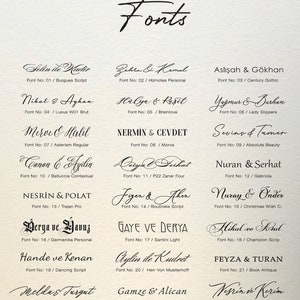 Fonts
Selin & Kadir
Font No: 01 / Burgues Script
Zehra & Kemal
Font No: 02 / Hipnotes Personal
Aslışah & Gökhan
Font No: 03 / Century Gothic
Nihal & Ayhan
Font No: 04 / Luxus W01 Brut
Hülya & Reşit
Font No: 05 / Brainlove
Yağmur & Burhan
Font No: 06 / Lady Slippers
Merve & Halil
Font No: 07 / Asterism Regular
NERMIN & CEVDET
Font No: 08 / Morva
Sevinç & Tamer
Font No: 09 / Absolute Beauty
Canan & Aydın
Font No: 10 / Bellucia Contextual
Özıyh & Serhat
Font No: 11 / P22 Zaner Four
Nuran & Serhat
Font No: 12 / Gabriola
NESRİN & POLAT
Font No: 13 / Trajan Pro
Figen & Alten
Font No: 14 / Boutiques Script
Nuray & Önder
Font No: 15 / Christmas Wish C.
Derya ve Yavuz
Font No: 16 / Germanika Personel
GAYE VE DERYA
Font No: 17 / Santini Light
Hilal ve Anıl
Font No: 18 / Champion Scrip
Hande ve Kenan
Font No: 19 / Dancing Script
Aylin & Kudret
Font No: 20 / Herr Von Muelernoff
FEYZA & TURAN
Font No: 21 / Book Antiqua
Melda & Turgut
Gamze & Alican
Nesrin & Kerim